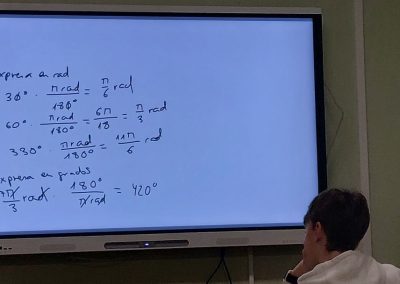 expresa en rad
30° · π rad / 180° = π/6 rad
60° · π rad / 180° = 6π/18 = π/3 rad
330° · π rad / 180° = 11π/6 rad
expresa en grados
7π/3 rad · 180° / π rad = 420°